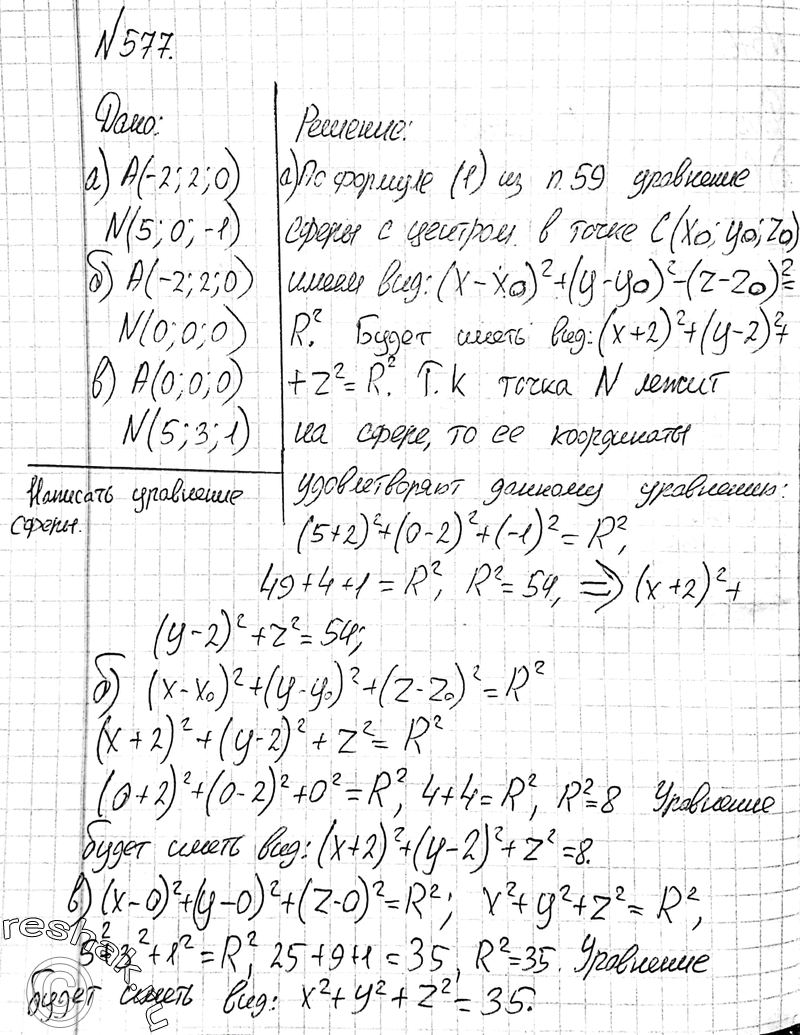 N577.
Дано:
а) A(-2; 2; 0)
N(5; 0; -1)
б) A(-2; 2; 0)
N(0; 0; 0)
в) A(0; 0; 0)
N(5; 3; 1)
Написать уравнение
сферы.
Решение:
а) По формуле (1) из п. 59 уравнение
сферы с центром в точке C(x₀; y₀; z₀)
имеем вид: (x-x₀)²+(y-y₀)²-(z-z₀)²=
R². Будет иметь вид: (x+2)²+(y-2)²+
+z²=R². Т.к точка N лежит
на сфере, то ее координаты
удовлетворяют данному уравнению:
(5+2)²+(0-2)²+(-1)²=R²,
49+4+1=R², R²=54, ⇒ (x+2)²+
(y-2)²+z²=54;
б) (x-x₀)²+(y-y₀)²+(z-z₀)²=R²
(x+2)²+(y-2)²+z²=R²
(0+2)²+(0-2)²+0²=R², 4+4=R², R²=8 Уравнение
будет иметь вид: (x+2)²+(y-2)²+z²=8.
в) (x-0)²+(y-0)²+(z-0)²=R²; x²+y²+z²=R²,
5²+3²+1²=R², 25+9+1=35, R²=35. Уравнение
будет иметь вид: x²+y²+z²=35.
reshak.